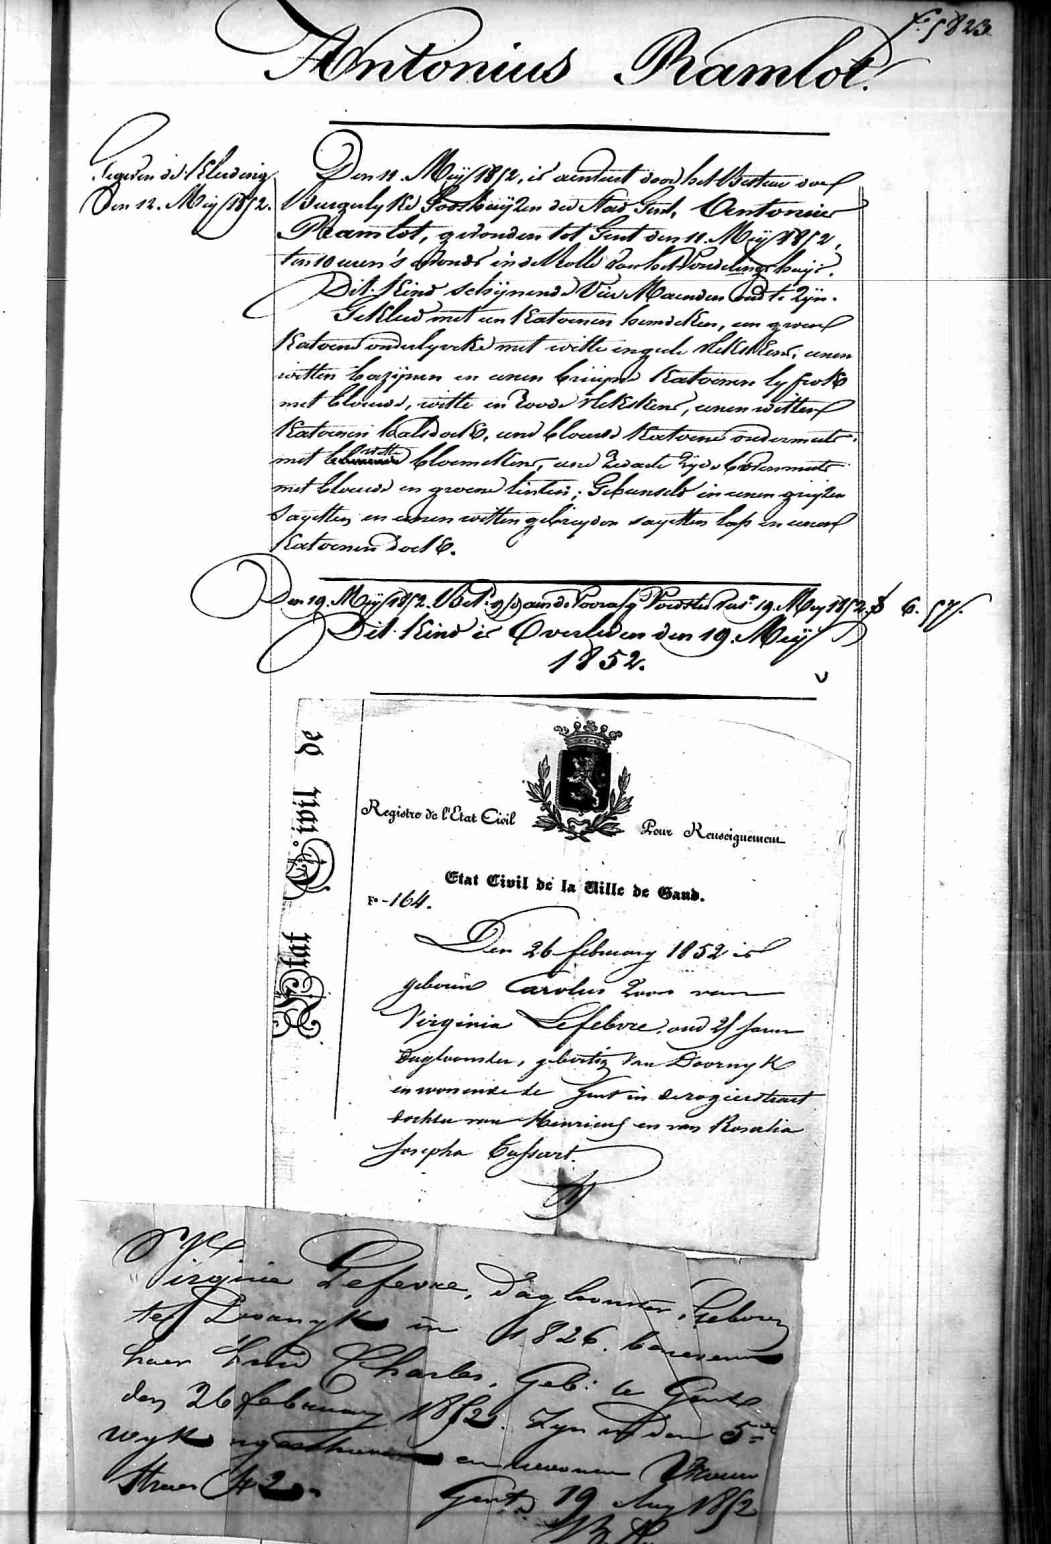 F.° 5823.
Antonius Ramlot.
Gegeven de Kleeding
Den 12. Meij 1852.
Den 11. Meij 1852, is aenveert door het Bestuer der
Burgerlijke Godshuijzen der Stad Gent, Antonius
Ramlot, gevonden tot Gent den 11. Meij 1852,
ten 10 uren 's avonds in de Rolle van het Vondelinghuijs.
Dit Kind schijnende Vier Maenden oud te zijn.
Gekleed met een Katoenen hemdeken, een groen
Katoene onderlijveke met witte en gele vlekskens, eenen
witten bazijnen en eenen bruijne Katoenen lijfrok
met blauwe, witte en roode vlekskens, eenen witten
Katoenen halsdoek, eene blauwe Katoene ondermuts
met witte bloemekens, eene zwarte zijde bovenmuts
met blauwe en groene linten; Gebunseld in eenen grijzen
sayetten en eenen witten gebreyden sayetten lap en eenen
Katoenen doek.
Den 19. Meij 1852. Bet. aan de Voedster 19. Meij 1852. 6. 57.
Dit Kind is Overleden den 19. Meij
1852.
Registre de l'Etat Civil Pour Renseignement
Etat Civil de la Ville de Gand.
F° - 164.
Den 26 february 1852 is
geboren Carolus Zoon van
Virginia Lefebvre, oud 25 Jaren
dagloonster, geboortig van Doornyk
en wonende te Gent in de rogierstraet
dochter van Henricus en van Rosalia
Josepha
Virginie Lefevre, Dagloonster, Geboren
tot Doornyk in 1826.
haer kind Charles, Geb: te Gent
den 26 february 1852. Zyn in den 5
wyk ingeschreven en bewonen
Straet N 2.
Gent 19 1852